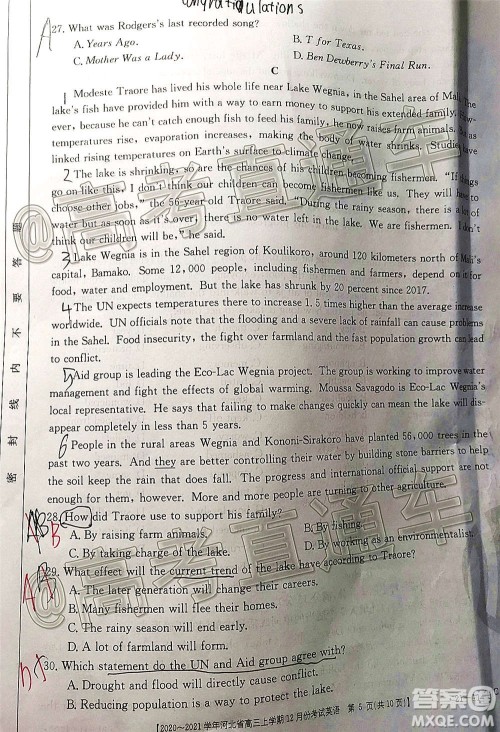 27. What was Rodgers's last recorded song?
A. Years Ago. B. T for Texas.
C. Mother Was a Lady. D. Ben Dewberry's Final Run.
C
1 Modeste Traore has lived his whole life near Lake Wegnia, in the Sahel area of Mali. The
lake's fish have provided him with a way to earn money to support his extended family.
ever, because he can't catch enough fish to feed his family, he now raises farm animals. As
temperatures rise, evaporation increases, making the body of water shrinks. Studies have
linked rising temperatures on Earth's surface to climate change.
2 The lake is shrinking, so are the chances of his children becoming fishermen. "If things
go on like this, I don't think our children can become fishermen like us. They will have to
choose other jobs," the 56-year-old Traore said. "During the rainy season, there is a lot of
water but as soon as it's over, there is no water left in the lake. We are fishermen. I don't
think our children will be," he said.
3 Lake Wegnia is in the Sahel region of Koulikoro, around 120 kilometers north of Mali's
capital, Bamako. Some 12,000 people, including fishermen and farmers, depend on it for
food, water and employment. But the lake has shrunk by 20 percent since 2017.
4 The UN expects temperatures there to increase 1.5 times higher than the average increase
worldwide. UN officials note that the flooding and a severe lack of rainfall can easily spread
in the Sahel. Food insecurity, the fight over farmland and the fast population growth can lead
to conflict.
5 Aid group is leading the Eco-Lac Wegnia project. The group is working to improve water
management and fight the effects of global warming. Moussa Savagodo is Eco-Lac Wegnia's
local representative. He says that failing to make changes quickly can mean the lake will dis-
appear completely in less than 5 years.
6 People in the rural areas Wegnia and Kononi-Sirakoro have planted 56,000 trees in the
past two years. And they are better controlling their water by building stone barriers to help
the soil keep the rain that does fall. The progress and international official support are not
enough for them, however. More and more people are turning to other agriculture.
28. How did Traore use to support his family?
A. By raising farm animals. B. By fishing.
C. By taking charge of the lake. D. By working as an environmentalist.
29. What effect will the current trend of the lake have according to Traore?
A. The later generation will change their careers.
B. Many fishermen will flee their homes.
C. The rainy season will end early.
D. A lot of farmland will form.
30. Which statement do the UN and Aid group agree with?
A. Drought and flood will directly cause conflict.
B. Reducing population is a way to protect the lake.
【2020~2021学年河北省高三上学期12月份考试英语 第5页(共10页)】
密封线内不要答题
@高考直通车
@高考直通车
答案圈
MXQE.COM